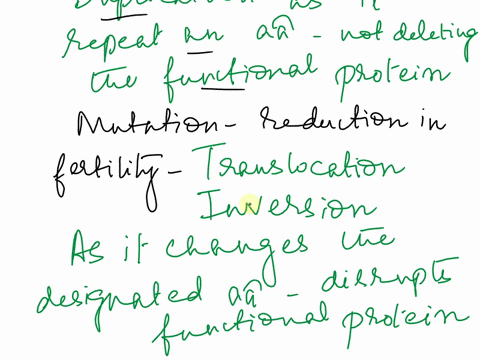 Duplication as it
repeat an aa - not deleting
the functional protein
Mutation - reduction in
fertility - Translocation
Inversion
As it changes the
designated aa - disrupts
functional protein